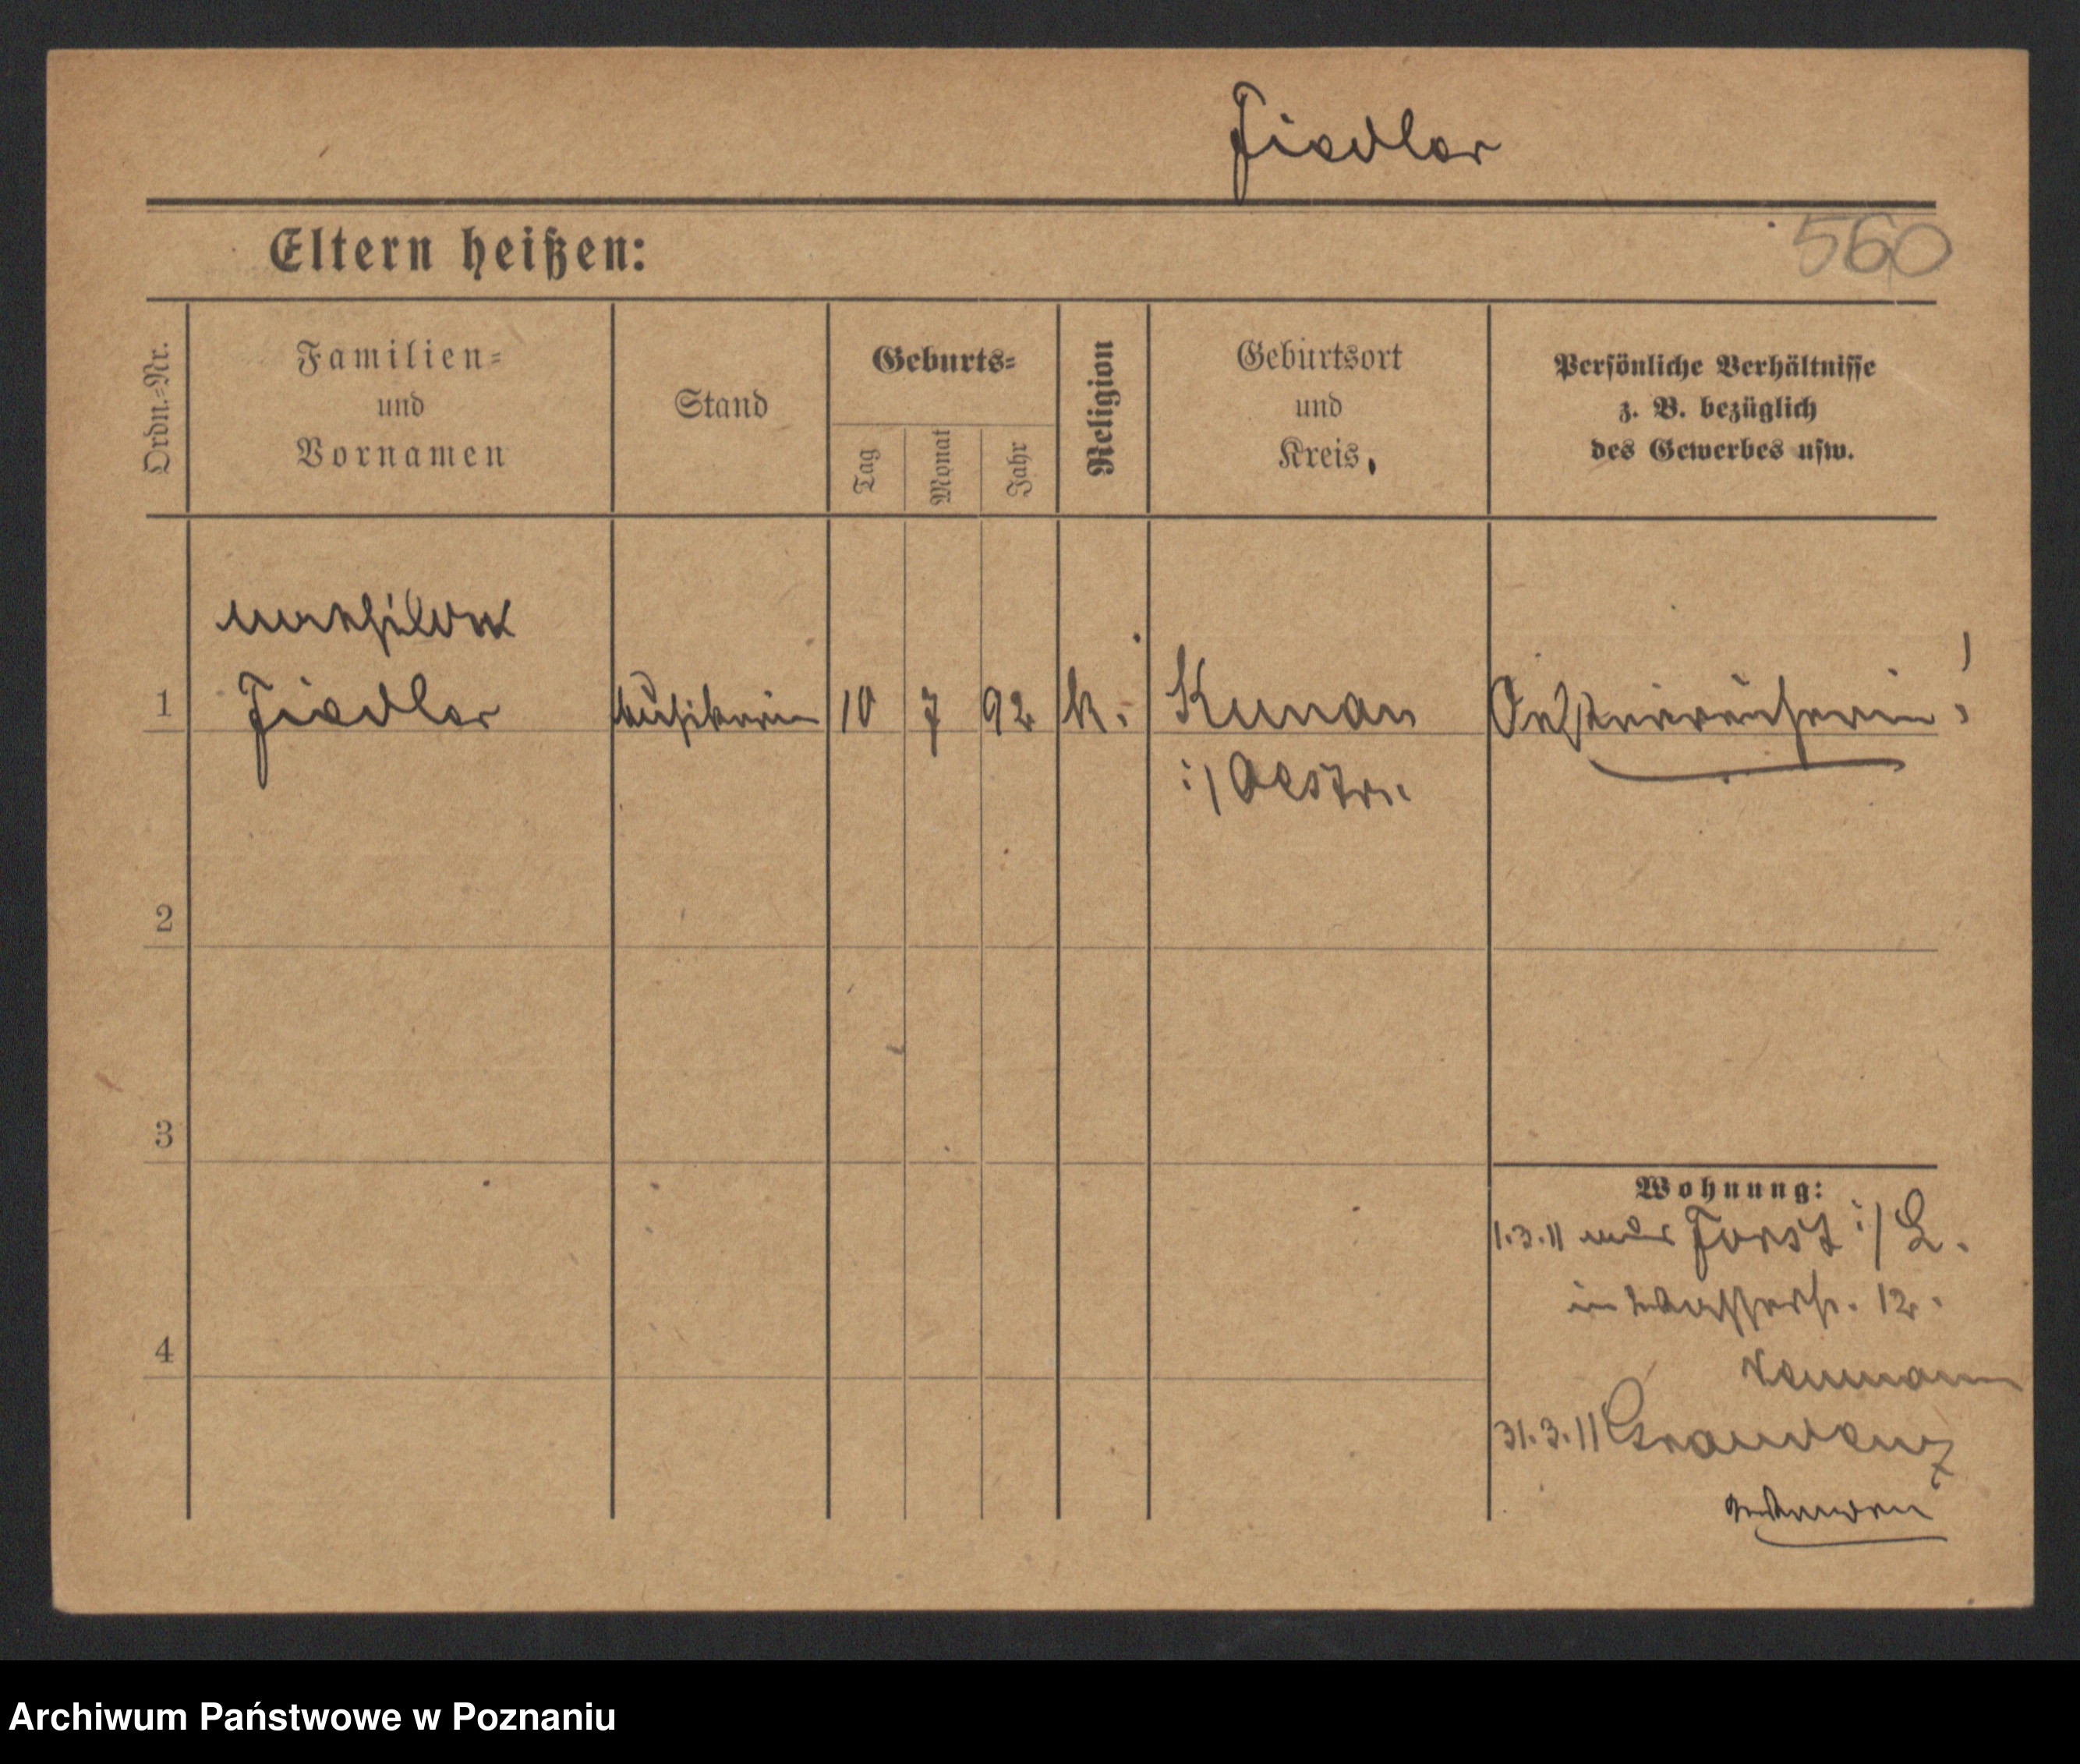 Fiedler
Eltern heißen:
560
Ordn.-Nr.
Familien-
und
Vornamen
Stand
Geburts-
Tag
Monat
Jahr
Religion
Geburtsort
und
Kreis,
Persönliche Verhältnisse
z. B. bezüglich
des Gewerbes usw.
Mathilde
1 Fiedler Musikerin 10 7 92 k. Kunau Oesterreicherin!
i/Oestr.
2
3
Wohnung:
1.3.11 aus Forst i/L.
in Wasserstr. 12.
4
Neumann
31.3.11 Graudenz
Archiwum Państwowe w Poznaniu